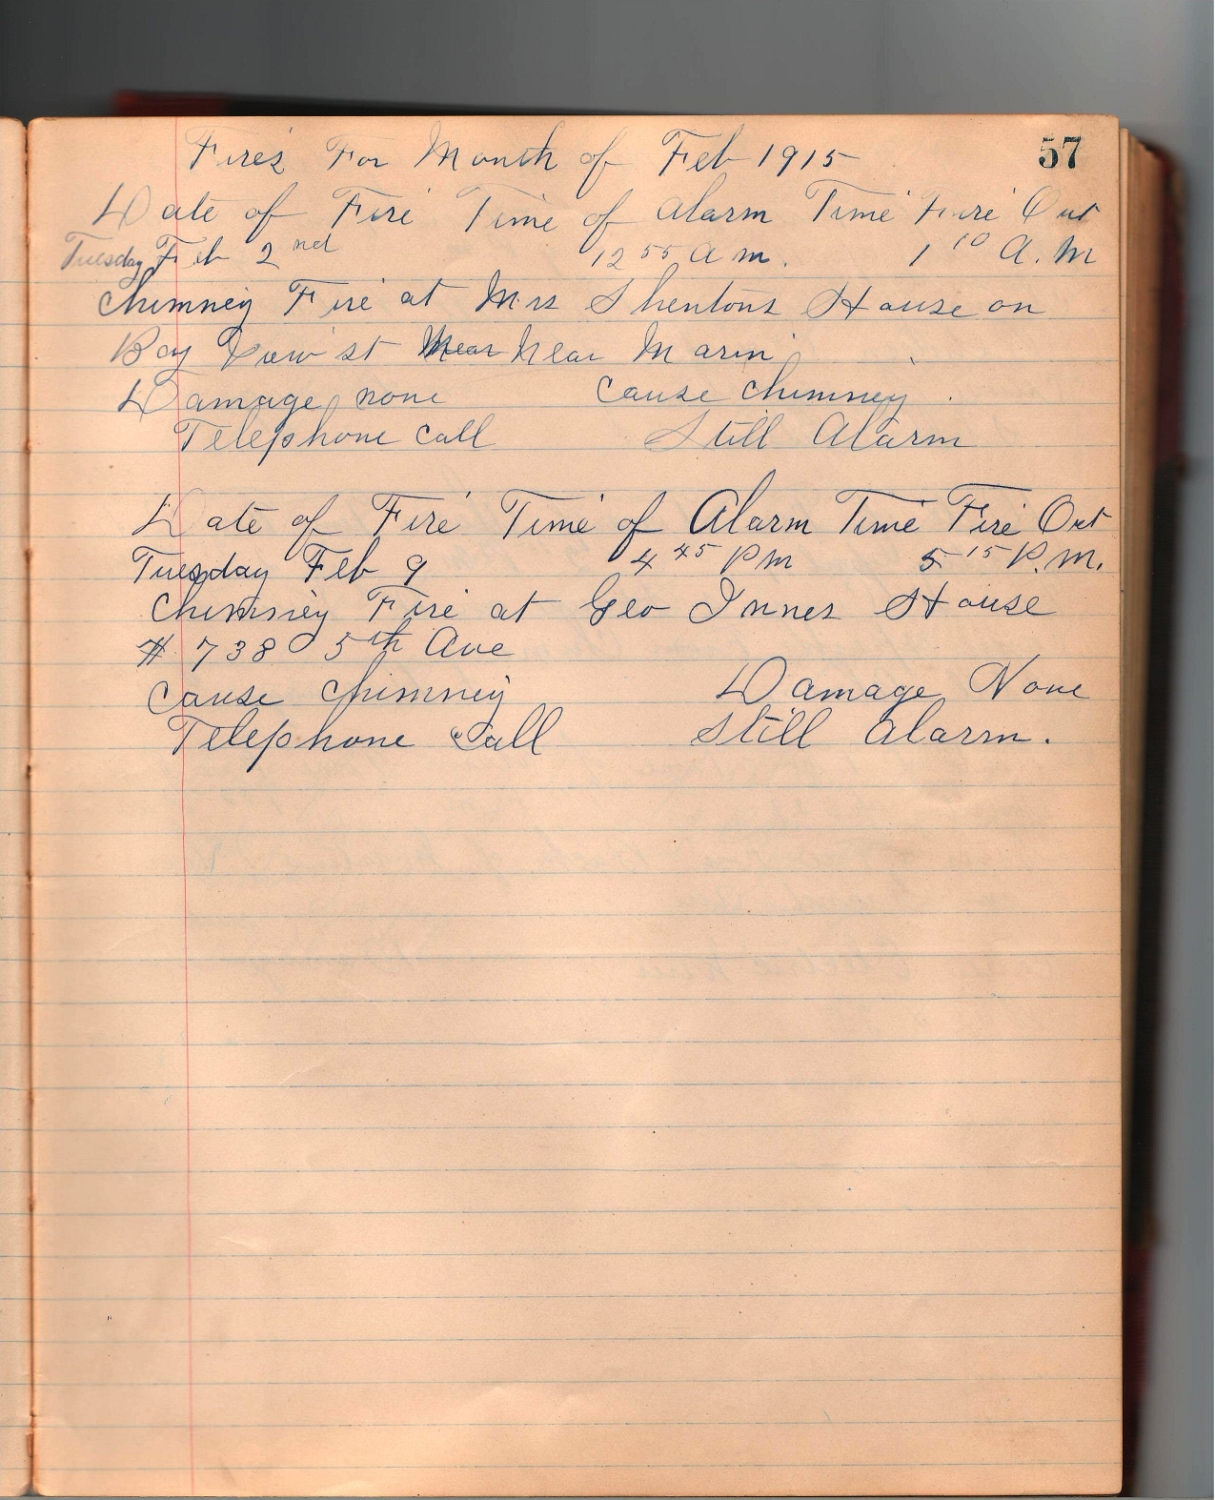 Fires For Month of Feb 1915 57
Date of Fire Time of Alarm Time Fire Out
Tuesday Feb 2nd 12 55 a m. 1 10 A.M
chimney Fire at Mrs Shentons House on
Bay View st Near Near Marin
Damage none Cause chimney.
Telephone Call Still Alarm
Date of Fire Time of Alarm Time Fire Out
Tuesday Feb 9 4 45 P m 5 15 P.m.
Chimney Fire at Geo Innes House
# 738 5th Ave
Cause Chimney Damage None
Telephone Call Still Alarm.